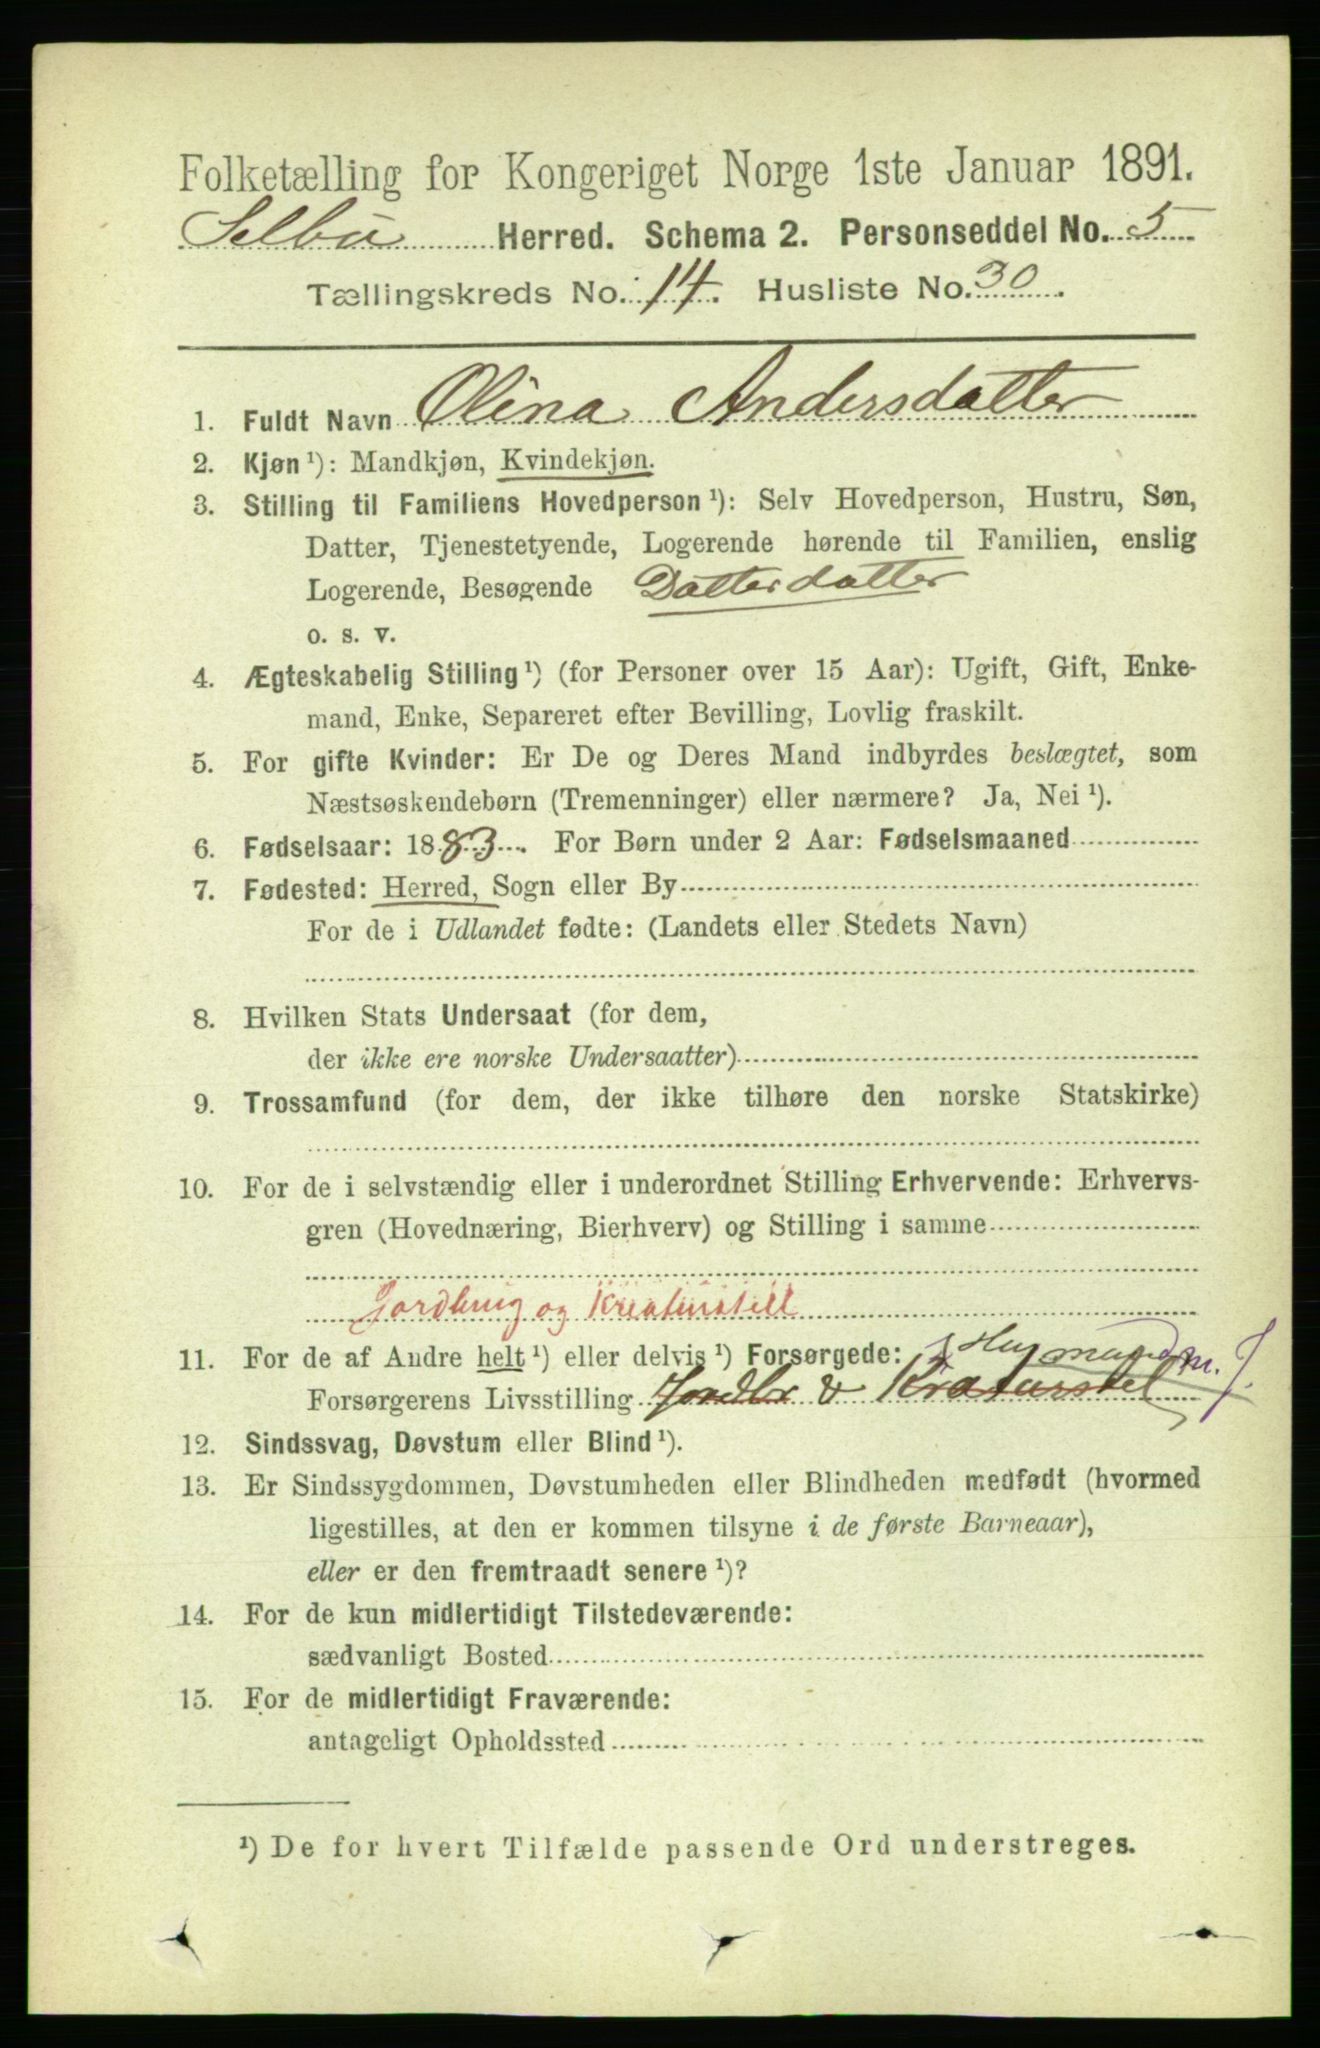 Folketælling for Kongeriget Norge 1ste Januar 1891.
Selbu Herred. Schema 2. Personseddel No. 5
Tællingskreds No. 14. Husliste No. 30.
1. Fuldt Navn Olina Andersdatter
2. Kjøn ¹): Mandkjøn, Kvindekjøn.
3. Stilling til Familiens Hovedperson ¹): Selv Hovedperson, Hustru, Søn,
Datter, Tjenestetyende, Logerende hørende til Familien, enslig
Logerende, Besøgende Datterdatter
o. s. v.
4. Ægteskabelig Stilling ¹) (for Personer over 15 Aar): Ugift, Gift, Enke-
mand, Enke, Separeret efter Bevilling, Lovlig fraskilt.
5. For gifte Kvinder: Er De og Deres Mand indbyrdes beslægtet, som
Næstsøskendebørn (Tremenninger) eller nærmere? Ja, Nei ¹).
6. Fødselsaar: 1883. For Børn under 2 Aar: Fødselsmaaned
7. Fødested: Herred, Sogn eller By
For de i Udlandet fødte: (Landets eller Stedets Navn)
8. Hvilken Stats Undersaat (for dem,
der ikke ere norske Undersaatter)
9. Trossamfund (for dem, der ikke tilhøre den norske Statskirke)
10. For de i selvstændig eller i underordnet Stilling Erhvervende: Erhvervs-
gren (Hovednæring, Bierhverv) og Stilling i samme
Jordbrug og Kreaturstell
11. For de af Andre helt ¹) eller delvis ¹) Forsørgede: Husmand m. J.
Forsørgerens Livsstilling Jordbr & Kreaturstel
12. Sindssvag, Døvstum eller Blind ¹).
13. Er Sindssygdommen, Døvstumheden eller Blindheden medfødt (hvormed
ligestilles, at den er kommen tilsyne i de første Barneaar),
eller er den fremtraadt senere ¹)?
14. For de kun midlertidigt Tilstedeværende:
sædvanligt Bosted
15. For de midlertidigt Fraværende:
antageligt Opholdssted
¹) De for hvert Tilfælde passende Ord understreges.